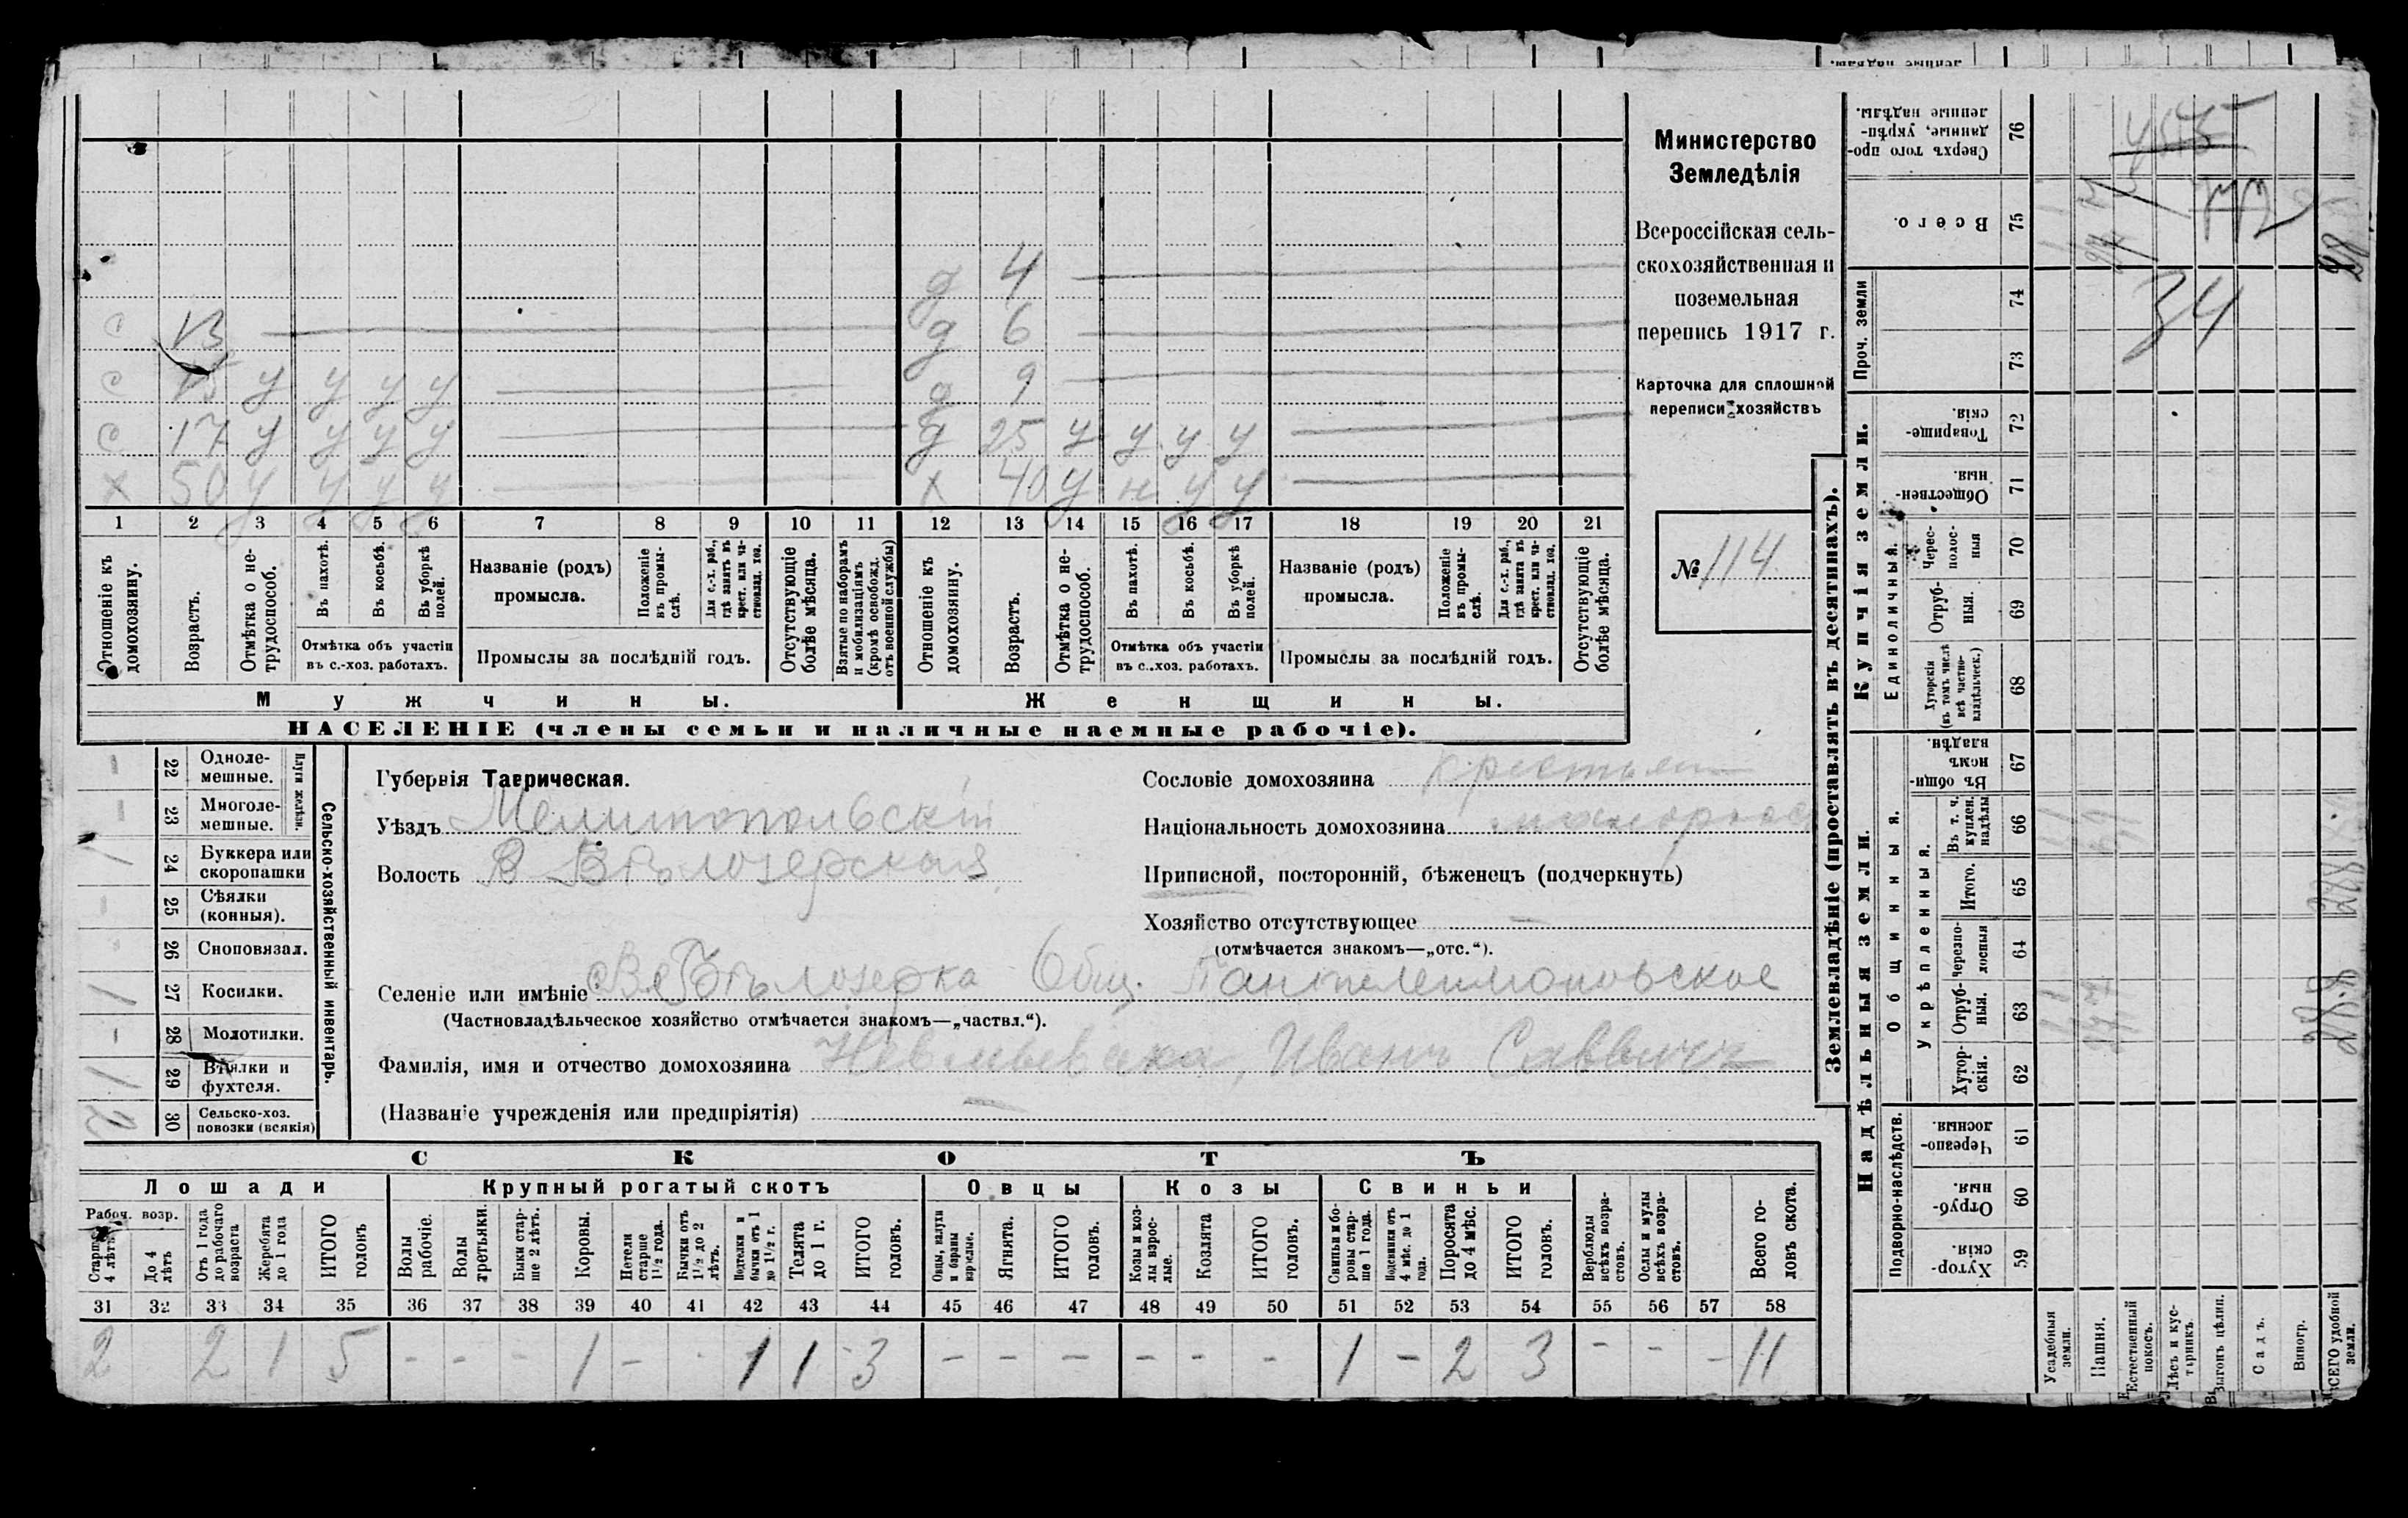 с 13
с 15 у у у у
с 17 у у у у
х 50 у у у у
д 4
д 6
д 9
д 25 у у у у
х 40 у н у у
1 2 3 4 5 6 7 8 9 10 11 12 13 14 15 16 17 18 19 20 21
Отношеніе къ домохозяину.
Возрастъ.
Отмѣтка о не-трудоспособ.
Въ пахотѣ.
Въ косьбѣ.
Въ уборкѣ полей.
Отмѣтка объ участіи
въ с.-хоз. работахъ.
Названіе (родъ)
промысла.
Положеніе въ промы-слѣ.
Для с.-х. раб., гдѣ занятъ въ крест. или ча-ствовлад. хоз.
Промыслы за послѣдній годъ.
Отсутствующіе болѣе мѣсяца.
Взятые по наборамъ и мобилизаціямъ (кромѣ освобожд. отъ военной службы)
Отношеніе къ домохозяину.
Возрастъ.
Отмѣтка о не-трудоспособ.
Въ пахотѣ.
Въ косьбѣ.
Въ уборкѣ полей.
Отмѣтка объ участіи
въ с..хоз. работахъ.
Названіе (родъ)
промысла.
Положеніе въ промы-слѣ.
Для с.-х. раб., гдѣ занята въ крест. или ча-ствовлад. хоз.
Промыслы за послѣдній годъ.
Отсутствующіе болѣе мѣсяца.
Мужчины.
Женщины.
НАСЕЛЕНІЕ (члены семьи и наличные наемные рабочіе).
Министерство
Земледѣлія
Всероссійская сель-
скохозяйственная и
поземельная
перепись 1917 г.
Карточка для сплошной
переписи хозяйствъ
№ 114
Сельско-хозяйственный инвентарь.
Плуги желѣзн.
- 22 Одноле-мешные.
- 23 Многоле-мешные.
1 24 Буккера или скоропашки
- 25 Сѣялки (конныя).
- 26 Сноповязал.
1 27 Косилки.
- 28 Молотилки.
1 29 Вѣялки и фухтеля.
2 30 Сельско-хоз. повозки (всякія)
Губернія Таврическая.
Уѣздъ Мелитопольскій
Волость В Бѣлозерская
Сословіе домохозяина крестьян
Національность домохозяина малоросс
Приписной, посторонній, бѣженецъ (подчеркнуть)
Хозяйство отсутствующее —
(отмѣчается знакомъ—„отс.“).
Селеніе или имѣніе В. Бѣлозерка Общ. Пантелеимоновское
(Частновладѣльческое хозяйство отмѣчается знакомъ—„частвл.“).
Фамилія, имя и отчество домохозяина Иванъ Саввичъ
(Названіе учрежденія или предпріятія) —
СКОТЪ
Лошади
Крупный рогатый скотъ
Овцы
Козы
Свиньи
Рабоч. возр.
Старше 4 лѣтъ
До 4 лѣтъ
Отъ 1 года до рабочаго возраста
Жеребята до 1 года
ИТОГО головъ
Волы рабочіе.
Волы третьяки.
Быки стар-ше 2 лѣтъ.
Коровы.
Нетели старше 1½ года.
Бычки отъ 1½ до 2 лѣтъ.
Подтелки и бычки отъ 1 до 1½ г.
Телята до 1 г.
ИТОГО головъ.
Овцы, валухи и бараны взрослые.
Ягнята.
ИТОГО головъ.
Козы и коз-лы взрос-лые.
Козлята
ИТОГО головъ.
Свиньи и бо-ровы стар-ше 1 года.
Подсвинки отъ 4 мѣс. до 1 года.
Поросята до 4 мѣс.
ИТОГО головъ.
Верблюды всѣхъ возра-стовъ.
Ослы и мулы всѣхъ возра-стовъ.
Всего го-ловъ скота.
31 32 33 34 35 36 37 38 39 40 41 42 43 44 45 46 47 48 49 50 51 52 53 54 55 56 57 58
2 2 1 5 - - - 1 - - 1 1 3 - - - - - - 1 - 2 3 - - - 11
Землевладѣніе (проставлять въ десятинахъ).
Купчія земли.
Надѣльныя земли.
Сверхъ того про-данные, укрѣп-ленные надѣлы. 76
Всего. 75
Проч. земли
74
73
Товарище-скія. 72
Обществен-ныя 71
Единоличныя.
Черес-полос-ныя 70
Отруб-ныя. 69
Хуторскія (въ томъ числѣ всѣ частно-владѣльческ.) 68
Общинныя.
Въ общи-номъ владѣн. 67
Укрѣпленныя.
Въ т. ч. куплен. надѣлы 66
Итого. 65
Черезпо-лосныя 64
Отруб-ныя. 63
Хутор-скія. 62
Подворно-наслѣдств.
Черезпо-лосныя. 61
Отруб-ныя. 60
Хутор-скія. 59
Усадебныя земли.
Пашня.
Естественный покосъ.
Лѣсъ и кус-тарникъ.
Выгонъ цѣлин.
Садъ.
Виногр.
ВСЕГО удобной земли.
34